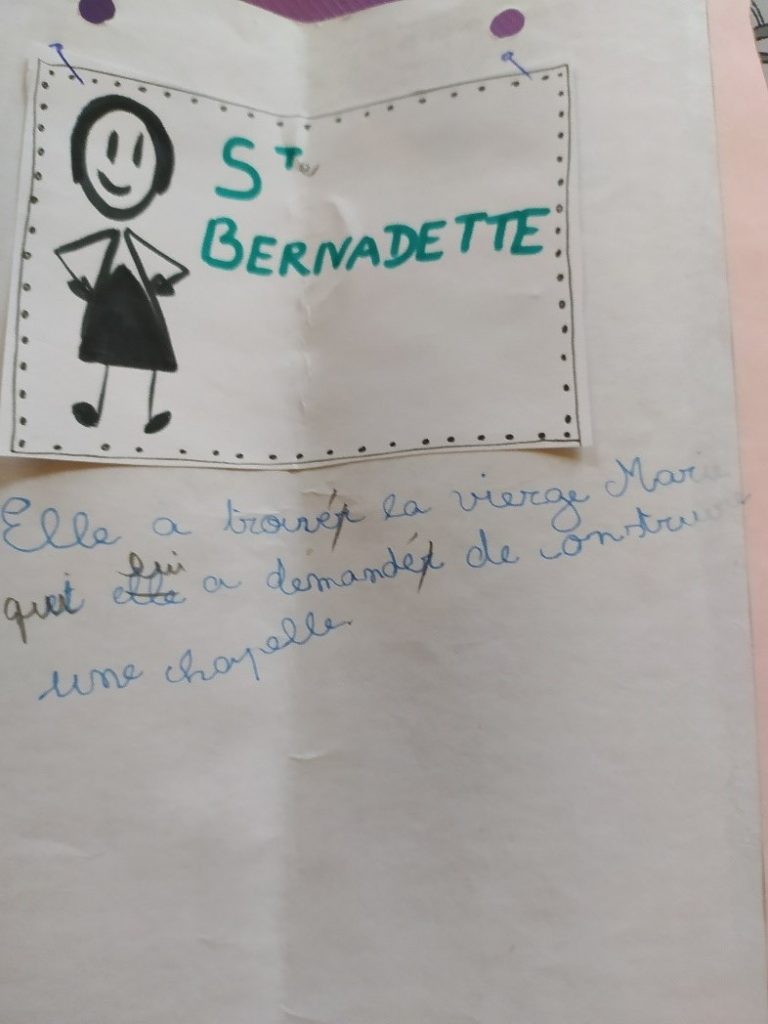 Ste
BERNADETTE
Elle a trouvé la vierge Marie
qui lui a demandé de construire
une chapelle.